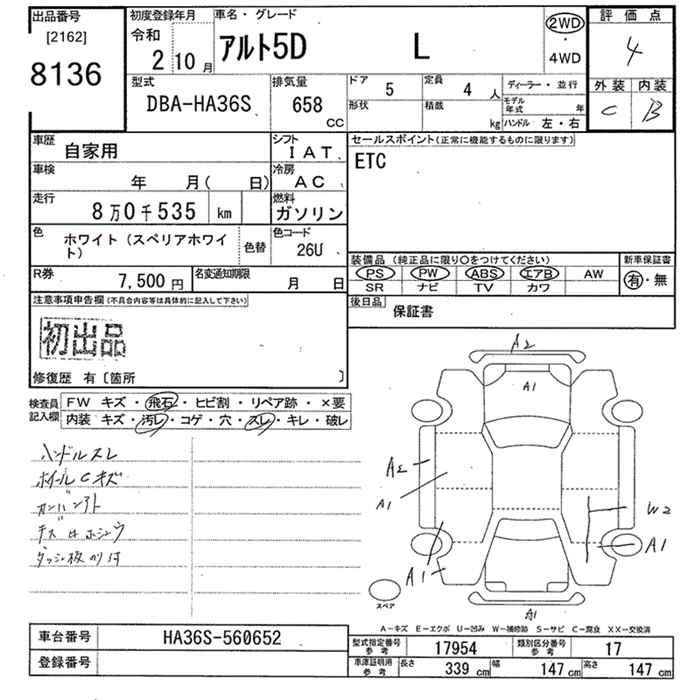 出品番号
[2162]
8136
初度登録年月
令和
2 10 月
車名・グレード
アルト5D L
2WD
・
4WD
評価点
4
外装 内装
C B
型式
DBA-HA36S
排気量
658
CC
ドア 5
定員 4 人
形状
積載 kg
ディーラー・並行
モデル年式 年
ハンドル 左・右
車歴
自家用
シフト
IAT
車検
年 月( 日)
冷房
AC
走行
8万0千535 km
燃料
ガソリン
色
ホワイト(スペリアホワイト)
色替
色コード
26U
R券
7,500 円
名変通知期限
月 日
セールスポイント(正常に機能するものに限ります)
ETC
装備品(純正品に限り〇をつけてください)
PS PW ABS エアB AW
SR ナビ TV カワ
新車保証書
有・無
後日品
保証書
注意事項申告欄(不具合内容等は具体的に記入して下さい)
初出品
修復歴 有〔箇所 〕
検査員
記入欄
FW キズ・飛石・ヒビ割・リペア跡・×要
内装 キズ・汚レ・コゲ・穴・スレ・キレ・破レ
ハンドルスレ
ホイールCキズ
ダッシュ板のり付
A2
A1
A2
A1
W2
A1
A1
A1
スペア
A-キズ E-エクボ U-凹み W-補修跡 S-サビ C-腐食 XX-交換済
車台番号
HA36S-560652
登録番号
型式指定番号
参考
17954
類別区分番号
参考
17
車庫証明用
参考
長さ 339 cm
幅 147 cm
高さ 147 cm